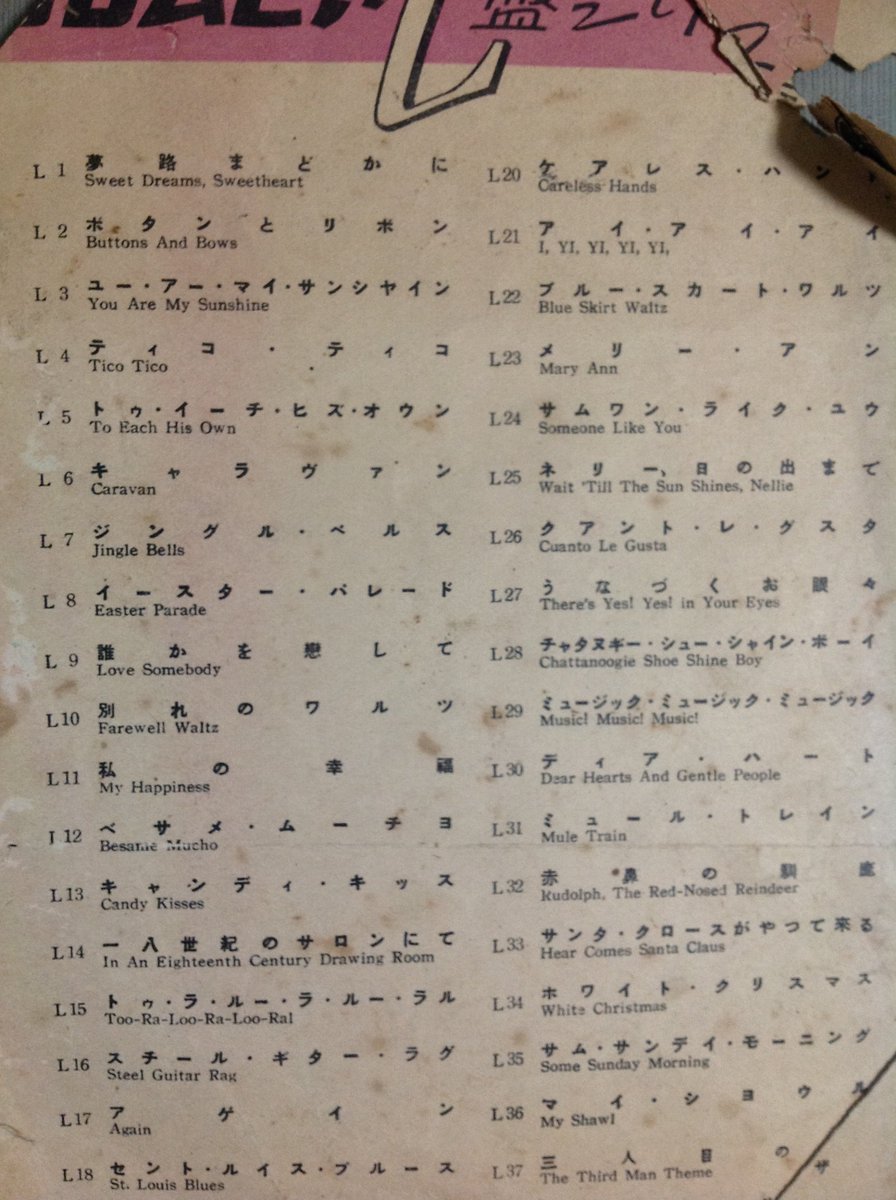 盤
L 1 夢路まどかに
Sweet Dreams, Sweetheart
L 2 ボタンとリボン
Buttons And Bows
L 3 ユー・アー・マイ・サンシャイン
You Are My Sunshine
L 4 ティコ・ティコ
Tico Tico
L 5 トゥ・イーチ・ヒズ・オウン
To Each His Own
L 6 キャラヴァン
Caravan
L 7 ジングル・ベルス
Jingle Bells
L 8 イースター・パレード
Easter Parade
L 9 誰かを戀して
Love Somebody
L10 別れのワルツ
Farewell Waltz
L11 私の幸福
My Happiness
L12 ベサメ・ムーチヨ
Besame Mucho
L13 キャンディ・キッス
Candy Kisses
L14 一八世紀のサロンにて
In An Eighteenth Century Drawing Room
L15 トゥ・ラ・ルー・ラ・ルー・ラル
Too-Ra-Loo-Ra-Loo-Ral
L16 スチール・ギター・ラグ
Steel Guitar Rag
L17 アゲイン
Again
L18 セント・ルイス・ブルース
St. Louis Blues
L20 ケアレス・ハンド
Careless Hands
L21 アイ・アイ・アイ
I, YI, YI, YI, YI,
L22 ブルー・スカート・ワルツ
Blue Skirt Waltz
L23 メリー・アン
Mary Ann
L24 サムワン・ライク・ユウ
Someone Like You
L25 ネリー、日の出まで
Wait 'Till The Sun Shines, Nellie
L26 クアント・レ・グスタ
Cuanto Le Gusta
L27 うなづくお眼々
There's Yes! Yes! in Your Eyes
L28 チャタヌギー・シュー・シャイン・ボーイ
Chattanoogie Shoe Shine Boy
L29 ミュージック・ミュージック・ミュージック
Music! Music! Music!
L30 ディア・ハート
Dear Hearts And Gentle People
L31 ミュール・トレイン
Mule Train
L32 赤鼻の馴鹿
Rudolph, The Red-Nosed Reindeer
L33 サンタ・クロースがやつて來る
Hear Comes Santa Claus
L34 ホワイト・クリスマス
White Christmas
L35 サム・サンデイ・モーニング
Some Sunday Morning
L36 マイ・シヨウル
My Shawl
L37 三人目の
The Third Man Theme